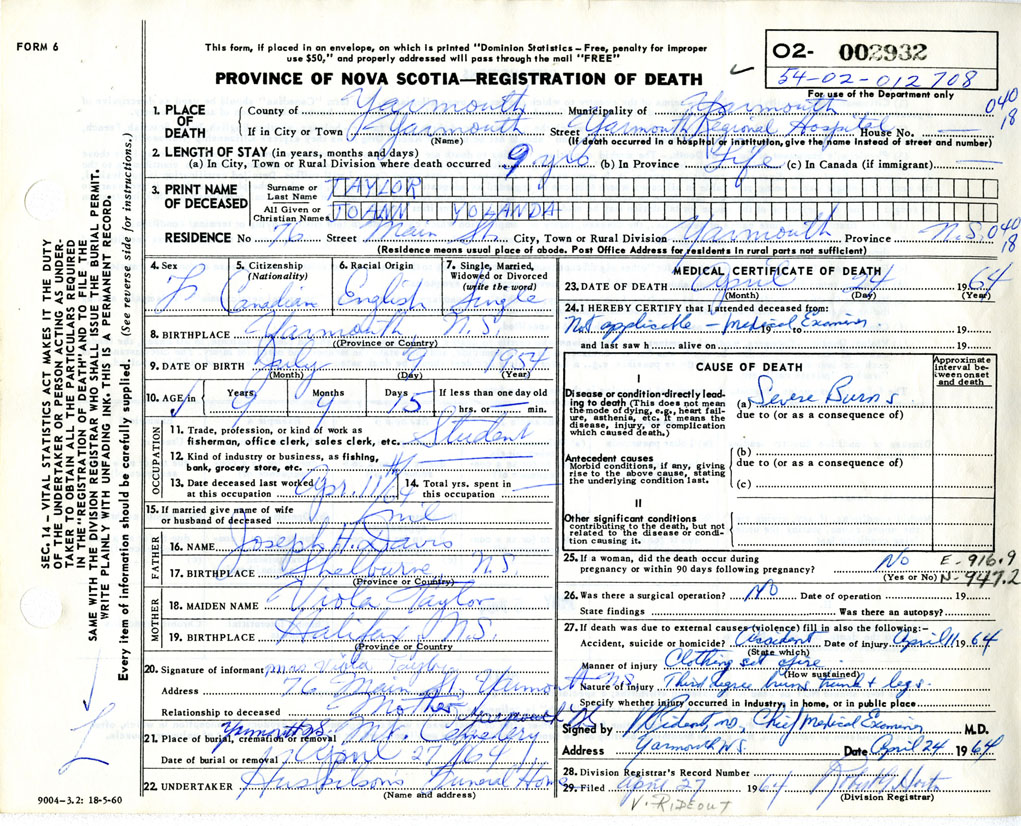 FORM 6
This form, if placed in an envelope, on which is printed "Dominion Statistics – Free, penalty for improper
use $50," and properly addressed will pass through the mail "FREE"
PROVINCE OF NOVA SCOTIA—REGISTRATION OF DEATH
O2- 002932
54-02-012708
For use of the Department only
SEC. 14 – VITAL STATISTICS ACT MAKES IT THE DUTY
OF THE UNDERTAKER OR PERSON ACTING AS UNDER-
TAKER TO OBTAIN ALL THE PARTICULARS REQUIRED
IN THE "REGISTRATION OF DEATH" AND TO FILE THE
SAME WITH THE DIVISION REGISTRAR WHO SHALL ISSUE THE BURIAL PERMIT.
WRITE PLAINLY WITH UNFADING INK. THIS IS A PERMANENT RECORD.
Every item of information should be carefully supplied. (See reverse side for instructions.)
1. PLACE OF DEATH County of Yarmouth Municipality of Yarmouth 040
If in City or Town Yarmouth Street Yarmouth Regional Hospital House No. — 18
(Name) (If death occurred in a hospital or institution, give the name instead of street and number)
2. LENGTH OF STAY (in years, months and days)
(a) In City, Town or Rural Division where death occurred 9 yrs (b) In Province Life (c) In Canada (if immigrant) —
3. PRINT NAME OF DECEASED Surname or Last Name TAYLOR
All Given or Christian Names JOANN YOLANDA
RESIDENCE No 76 Street Main St. City, Town or Rural Division Yarmouth Province N.S. 040
18
(Residence means usual place of abode. Post Office Address for residents in rural parts not sufficient)
4. Sex F
5. Citizenship (Nationality) Canadian
6. Racial Origin English
7. Single, Married, Widowed or Divorced (write the word) Single
8. BIRTHPLACE Yarmouth N.S.
(Province or Country)
9. DATE OF BIRTH July 9 1954
(Month) (Day) (Year)
10. AGE in Years 9 Months 9 Days 15 If less than one day old
hrs. or min.
OCCUPATION
11. Trade, profession, or kind of work as
fisherman, office clerk, sales clerk, etc. Student
12. Kind of industry or business, as fishing,
bank, grocery store, etc.
13. Date deceased last worked at this occupation Apr. 11/64
14. Total yrs. spent in this occupation —
15. If married give name of wife
or husband of deceased
FATHER
16. NAME Joseph H. Davis
17. BIRTHPLACE Shelburne N.S.
(Province or Country)
MOTHER
18. MAIDEN NAME Viola Taylor
19. BIRTHPLACE Halifax, N.S.
(Province or Country)
20. Signature of informant Mrs Viola Taylor
Address 76 Main St. Yarmouth N.S.
Relationship to deceased Mother
21. Place of burial, cremation or removal Yarmouth NS Mt. Cemetery
Date of burial or removal April 27/64
22. UNDERTAKER Huskilson's Funeral Home
(Name and address)
9004–3.2: 18-5-60
MEDICAL CERTIFICATE OF DEATH
23. DATE OF DEATH April 24 1964
(Month) (Day) (Year)
24. I HEREBY CERTIFY that I attended deceased from:
Not applicable – Medical Examiner 19
and last saw h alive on 19
CAUSE OF DEATH
Approximate interval between onset and death
I
Disease or condition directly leading to death (This does not mean
the mode of dying, e.g., heart failure, asthenia, etc. It means the
disease, injury, or complication which caused death.)
(a) Severe Burns
due to (or as a consequence of)
Antecedent causes
Morbid conditions, if any, giving rise to the above cause, stating
the underlying condition last.
(b)
due to (or as a consequence of)
(c)
II
Other significant conditions
contributing to the death, but not related to the disease or condition causing it.
25. If a woman, did the death occur during
pregnancy or within 90 days following pregnancy? No
(Yes or No)
E-916.9
N-947.2
26. Was there a surgical operation? No Date of operation 19
State findings Was there an autopsy?
27. If death was due to external causes (violence) fill in also the following:-
Accident, suicide or homicide? Accident Date of injury April 11 1964
(State which)
Manner of injury Clothing set afire
(How sustained)
Nature of injury Third degree burns trunk + legs.
Specify whether injury occurred in industry, in home, or in public place
Signed by Chief Medical Examiner M.D.
Address Yarmouth, N.S. Date April 24 1964
28. Division Registrar's Record Number
29. Filed April 27 1964
(Division Registrar)
V. RIDEOUT